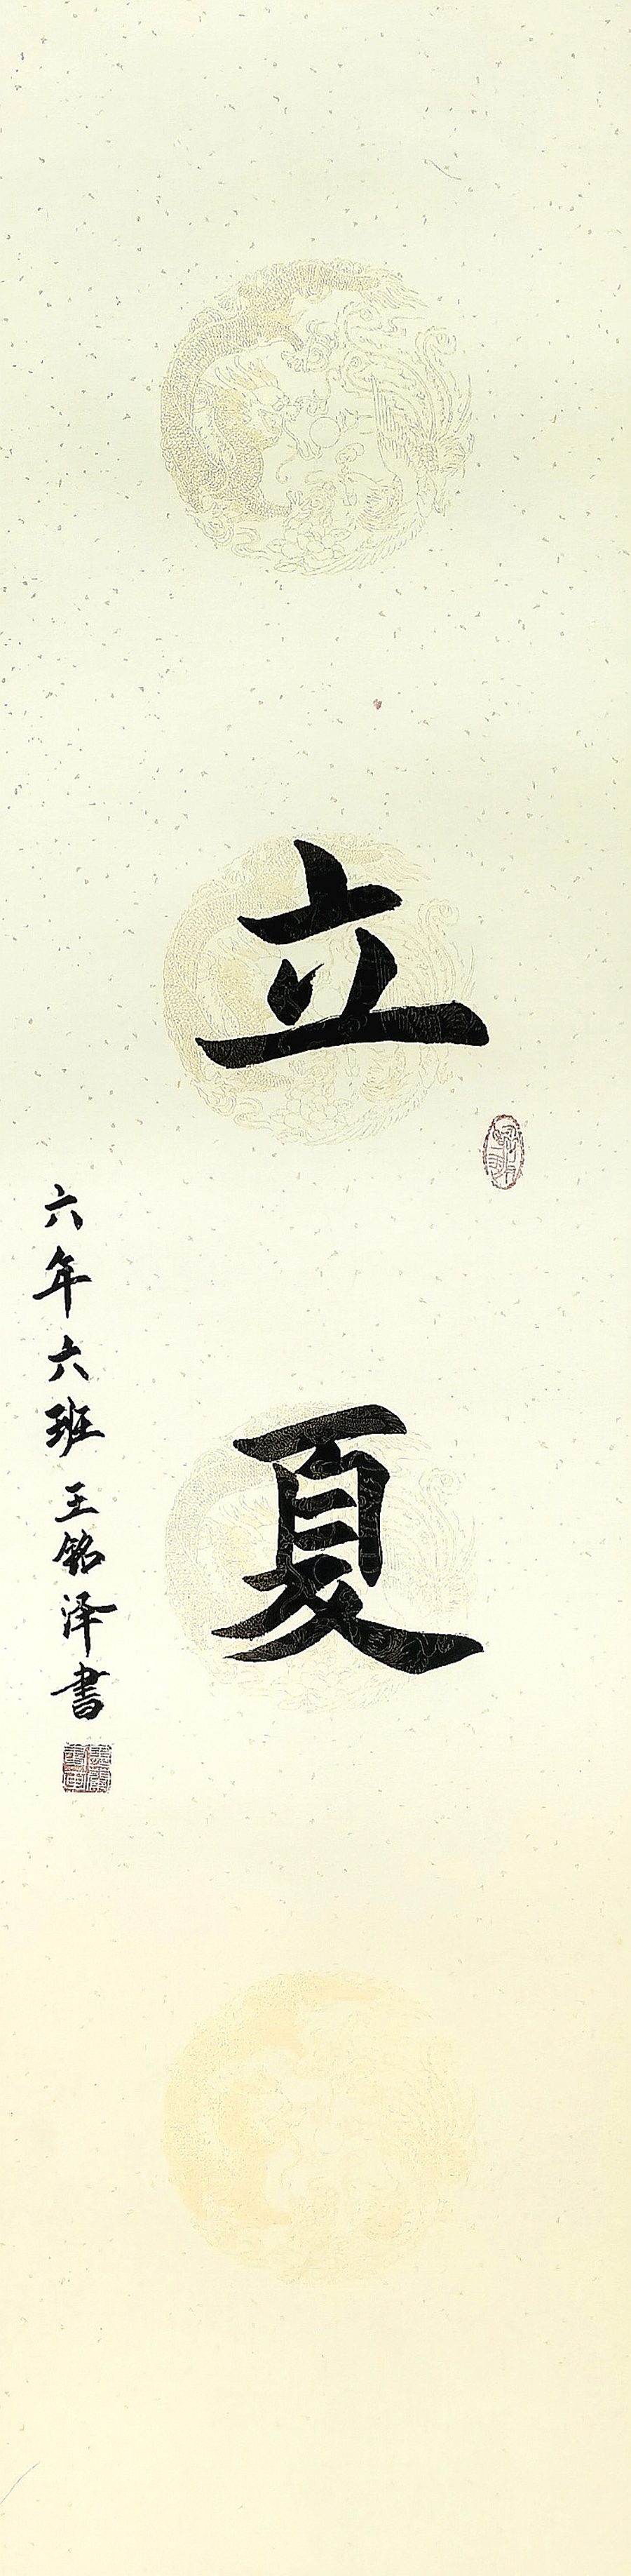 立夏
六年六班王铭泽書